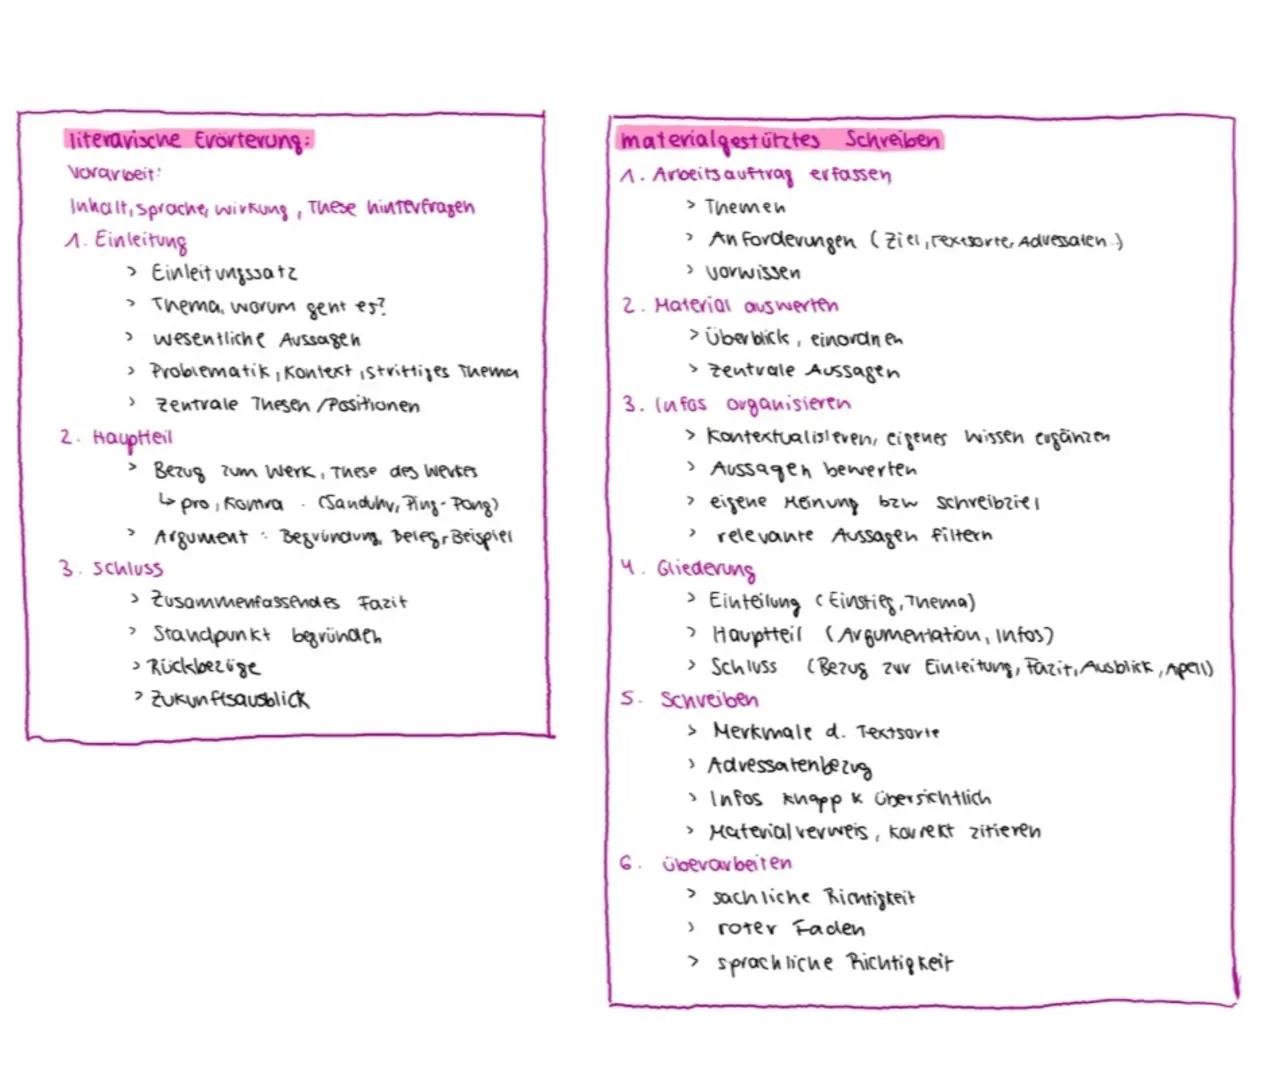 literarische Erörterung:
Vorarbeit:
Inhalt, Sprache, Wirkung, These hinterfragen
1. Einleitung
> Einleitungssatz
> Thema, worum geht es?
> wesentliche Aussagen
> Problematik, Kontext, strittiges Thema
> zentrale Thesen / Positionen
2. Hauptteil
> Bezug zum Werk, These des Werkes
↳ pro, Kontra. (Sanduhr, Ping-Pong)
> Argument: Begründung, Beleg, Beispiel
3. Schluss
> Zusammenfassendes Fazit
> Standpunkt begründen
> Rückbezüge
> Zukunftsausblick
materialgestütztes Schreiben
1. Arbeitsauftrag erfassen
> Themen
> Anforderungen (Ziel, Textsorte, Adressaten.)
> Vorwissen
2. Material auswerten
> Überblick, einordnen
> zentrale Aussagen
3. Infos organisieren
> Kontextualisieren, eigenes Wissen ergänzen
> Aussagen bewerten
> eigene Meinung bzw Schreibziel
> relevante Aussagen filtern
4. Gliederung
> Einteilung (Einstieg, Thema)
> Hauptteil (Argumentation, Infos)
> Schluss (Bezug zur Einleitung, Fazit, Ausblick, Apell)
5. Schreiben
> Merkmale d. Textsorte
> Adressatenbezug
> Infos knapp & übersichtlich
> Materialverweis, korrekt zitieren
6. überarbeiten
> sachliche Richtigkeit
> roter Faden
> sprachliche Richtigkeit